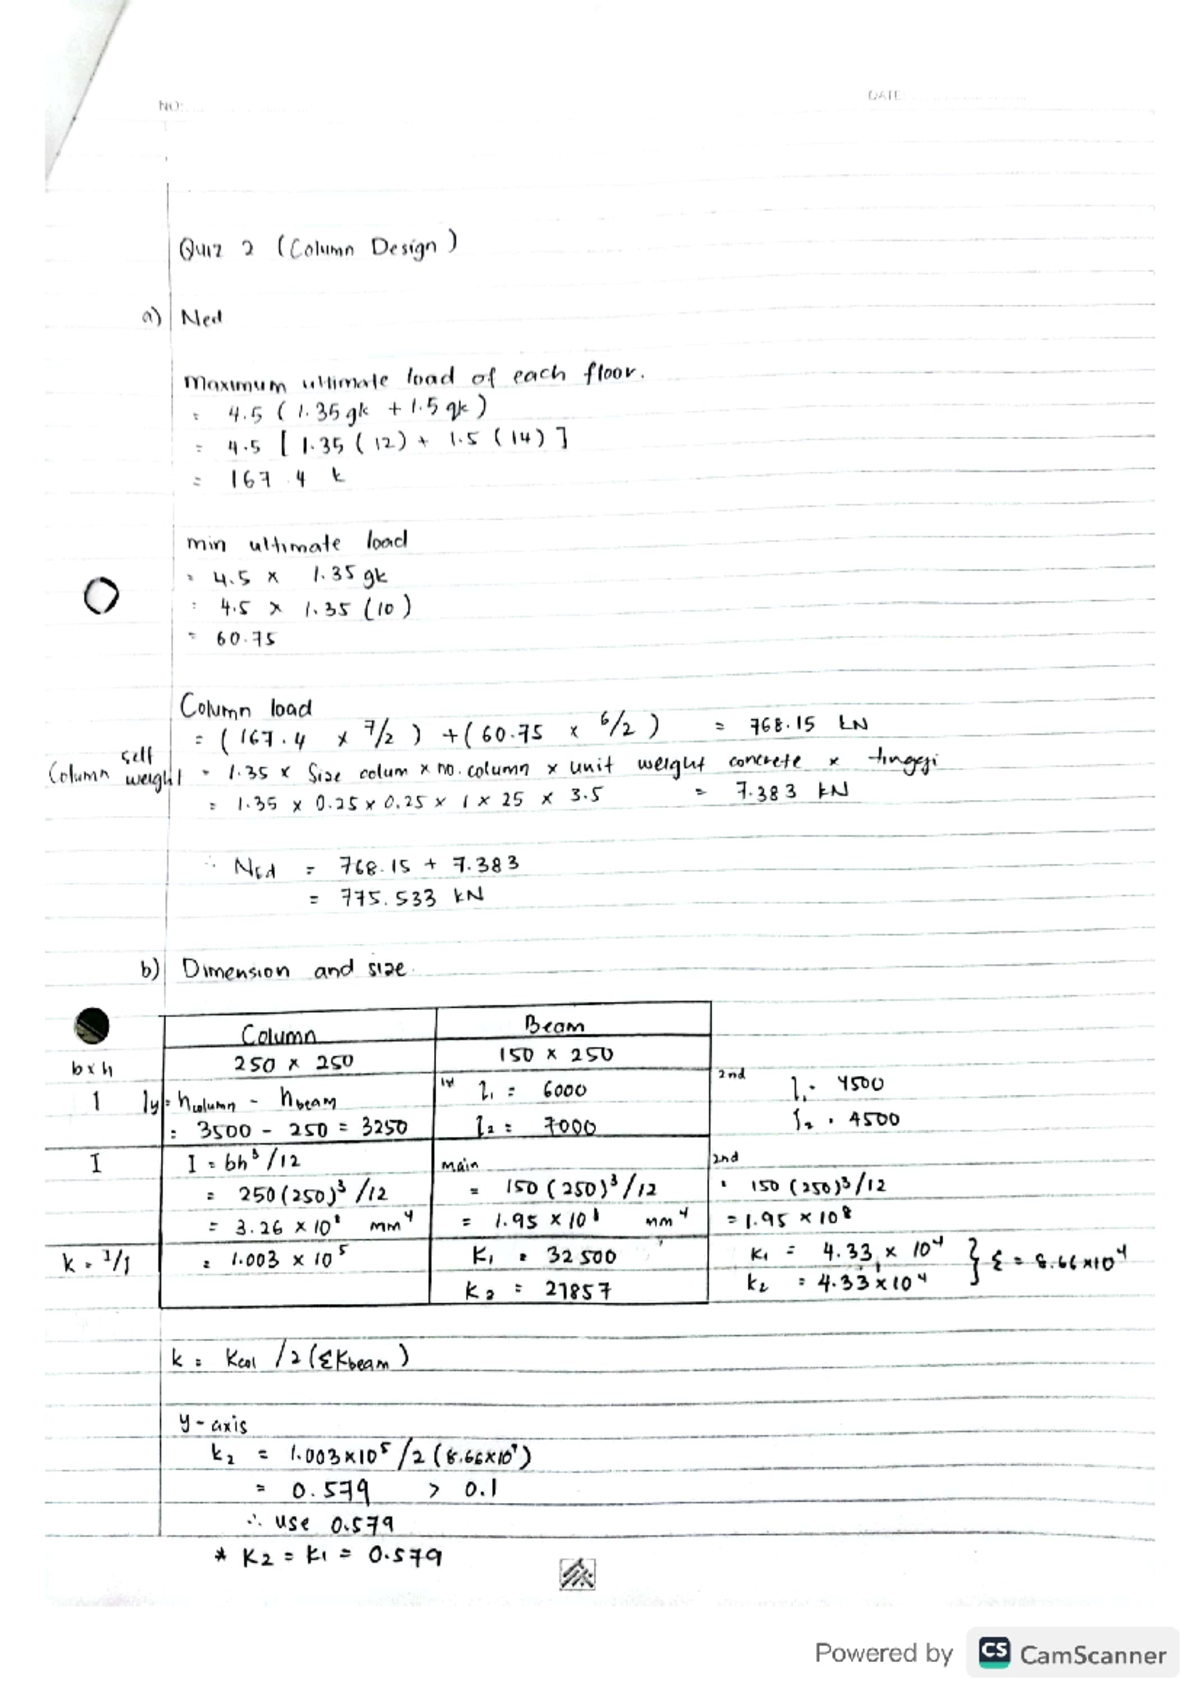 NO:
DATE
Quiz 2 (Column Design)
a) Ned
Maximum ultimate load of each floor.
= 4.5 (1.35 gk + 1.5 qk)
= 4.5 [1.35 (12) + 1.5 (14)]
= 167.4 k
min ultimate load
= 4.5 × 1.35 gk
= 4.5 × 1.35 (10)
= 60.75
Column load
= (167.4 × 7/2) + (60.75 × 6/2) = 768.15 kN
Column self weight = 1.35 × Size colum × no. column × unit weight concrete × tinggi
= 1.35 × 0.25 × 0.25 × 1 × 25 × 3.5 = 7.383 kN
∴ NEd = 768.15 + 7.383
= 775.533 kN
b) Dimension and size.
Column Beam
b×h 250 × 250 150 × 250
l ly = hcolumn - hbeam 1st l₁ = 6000 2nd l₁ = 4500
= 3500 - 250 = 3250 l₂ = 7000 l₂ = 4500
I I = bh³/12 main 2nd
= 250(250)³/12 = 150(250)³/12 = 150(250)³/12
= 3.26 × 10⁸ mm⁴ = 1.95 × 10⁸ mm⁴ = 1.95 × 10⁸
k = I/l = 1.003 × 10⁵ K₁ = 32500 K₁ = 4.33 × 10⁴ } Σ = 8.66×10⁴
K₂ = 27857 k₂ = 4.33×10⁴
k = Kcol /2(ΣKbeam)
y-axis
k₂ = 1.003×10⁵/2(8.66×10⁴)
= 0.579 > 0.1
∴ use 0.579
* K₂ = K₁ = 0.579
Powered by CS CamScanner